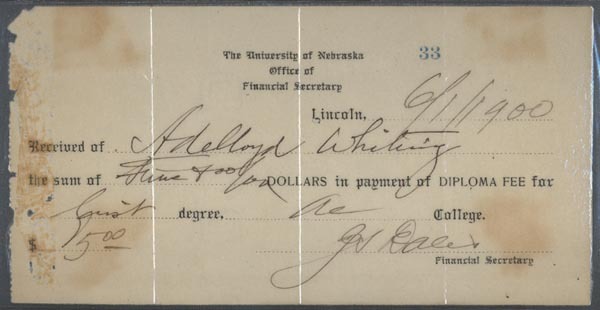 The University of Nebraska 33
Office of
Financial Secretary
Lincoln, 6/1/1900
Received of Adelloyd Whiting
the sum of Five & 00/100 DOLLARS in payment of DIPLOMA FEE for
first degree, College.
$ 5.00 J S Dales
Financial Secretary